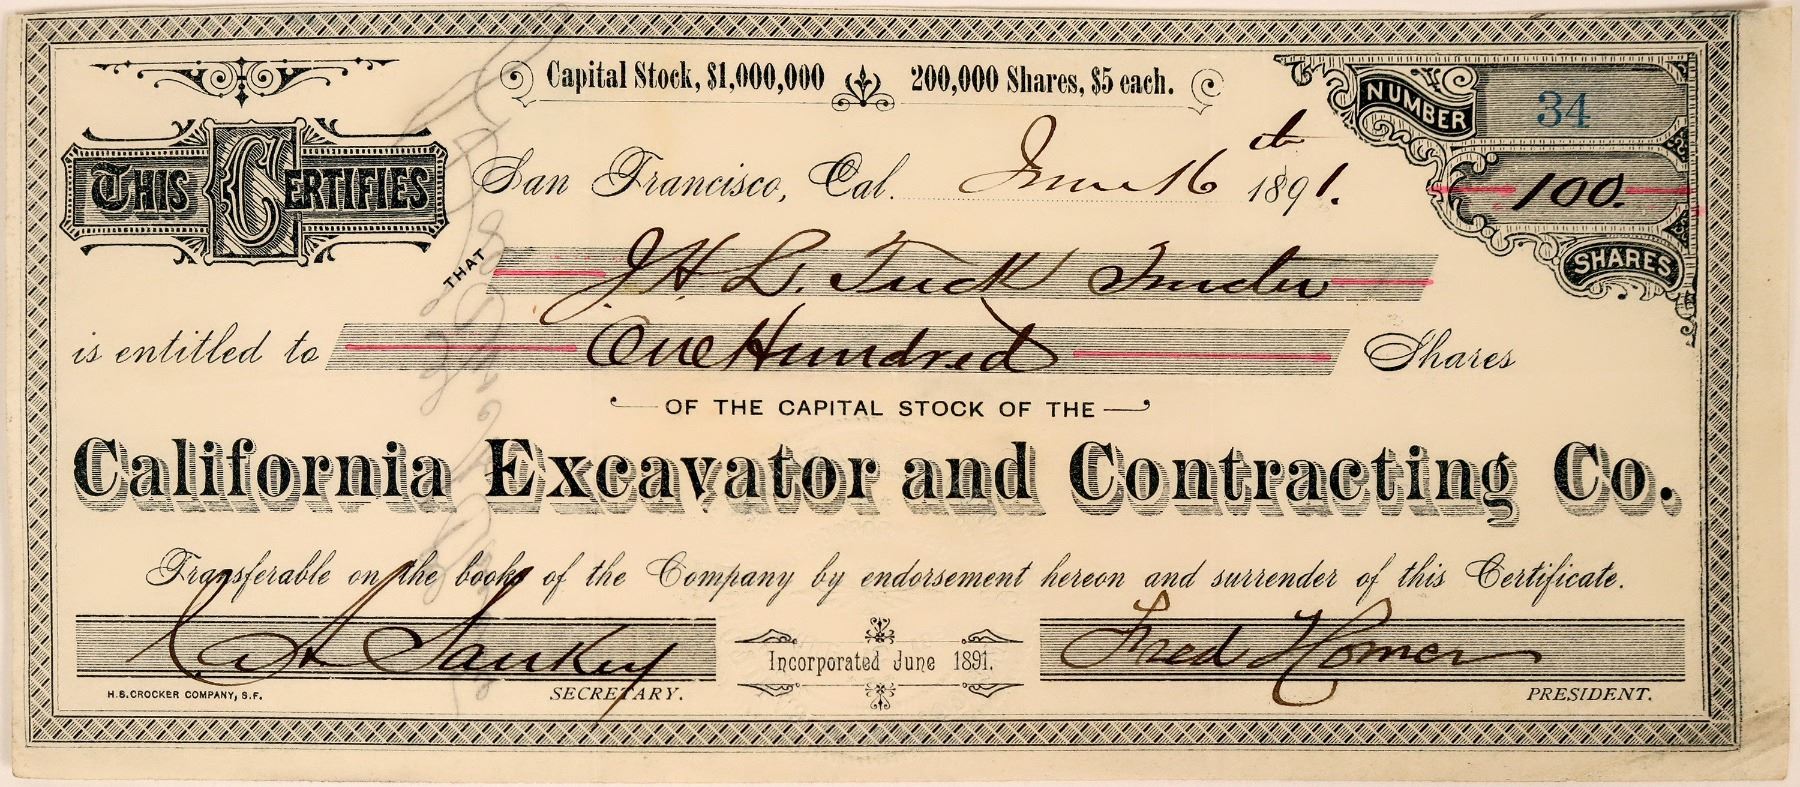 Capital Stock, $1,000,000 200,000 Shares, $5 each.
NUMBER 34
THIS CERTIFIES
San Francisco, Cal. June 16th 1891.
100.
SHARES
THAT J. H. L. Tuck Trustee
is entitled to One Hundred Shares
OF THE CAPITAL STOCK OF THE
California Excavator and Contracting Co.
Transferable on the books of the Company by endorsement hereon and surrender of this Certificate.
Sankey
Fred Homer
Incorporated June 1891.
H.S. CROCKER COMPANY, S.F. SECRETARY. PRESIDENT.